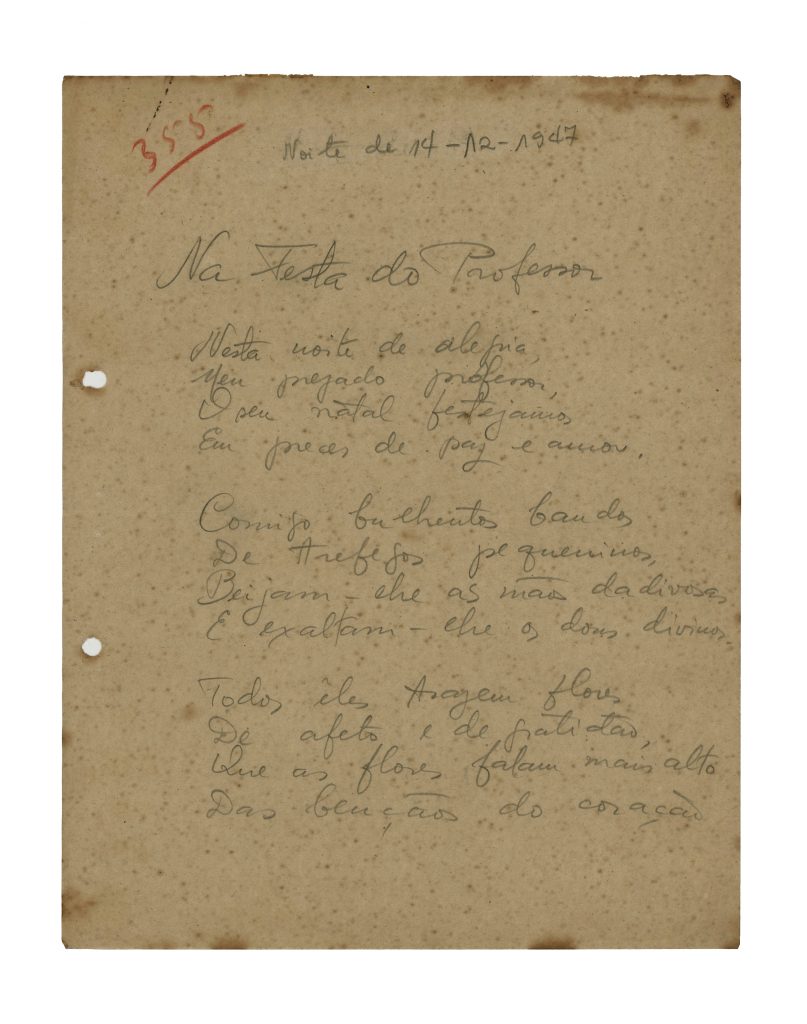 355
Noite de 14-12-1947
Na Festa do Professor
Nesta noite de alegria,
Meu prezado professor,
O seu natal festejamos
Em preces de paz e amor.
Comigo bulhentos bandos
De trefegos pequeninos,
Beijam-lhe as mãos dadivosas
E exaltam-lhe os dons divinos.
Todos êles trazem flores
De afeto e de gratidão,
Que as flores falam mais alto
Das bençãos do coração